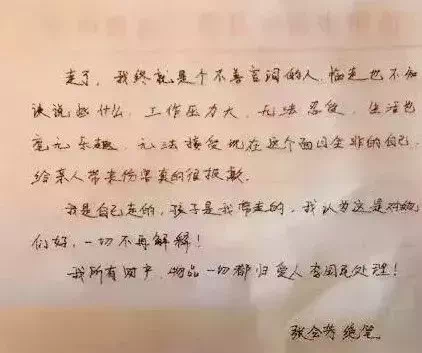 走了，我终就是个不善言词的人，临走也不知
该说些什么，工作压力大，无法忍受，生活也
毫无乐趣，无法接受现在这个面目全非的自己，
给亲人带来伤害真的很抱歉。
我是自己走的，孩子是我带走的，我认为这是对她
们好，一切不再解释！
我所有财产、物品一切都归爱人李国处理！
张全芳 绝笔